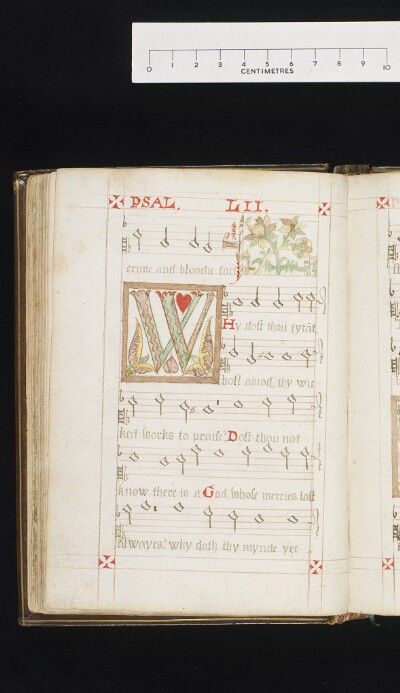 0 1 2 3 4 5 6 7 8 9 10
CENTIMETRES
PSAL. LII.
cryme and bloodie
W
Hy dost thou tyrāt
bost abrod, thy wic
ked works to praise Dost thou not
know there is a God whose mercies last
Alwayes. why doth thy mynde yet